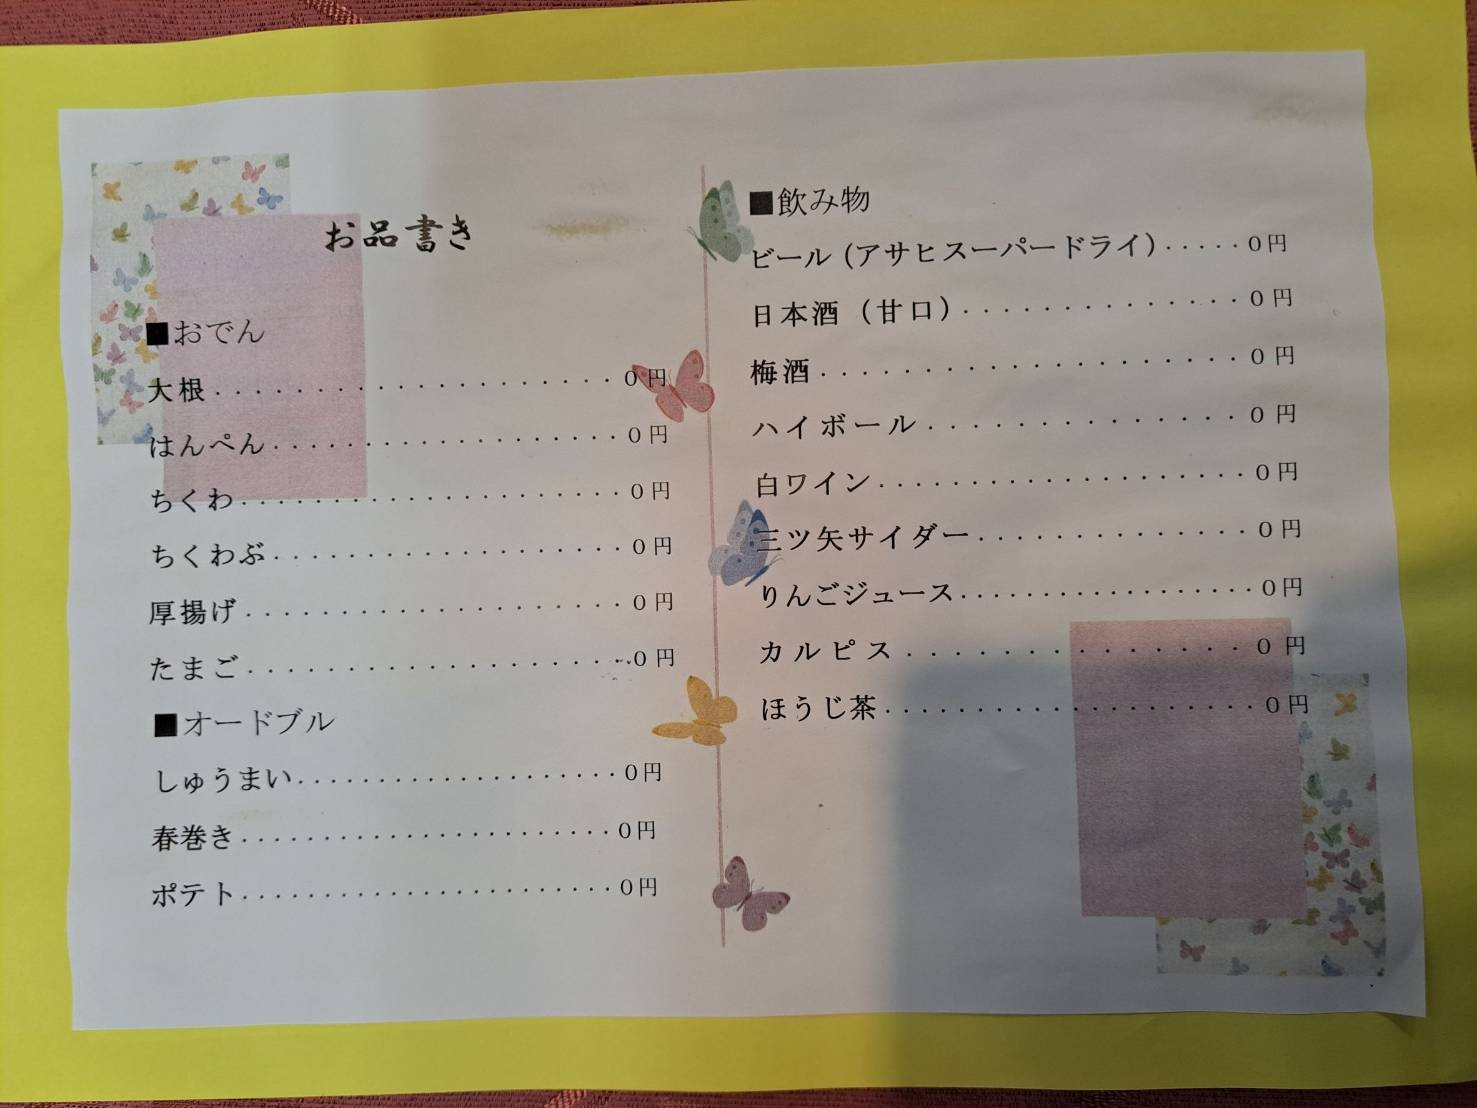 お品書き
■おでん
大根....................0円
はんぺん...................0円
ちくわ.....................0円
ちくわぶ...................0円
厚揚げ.....................0円
たまご.....................0円
■オードブル
しゅうまい....................0円
春巻き.......................0円
ポテト.......................0円
■飲み物
ビール(アサヒスーパードライ).....0円
日本酒(甘口)..............0円
梅酒....................0円
ハイボール...............0円
白ワイン...................0円
三ツ矢サイダー...............0円
りんごジュース..................0円
カルピス...............0円
ほうじ茶....................0円